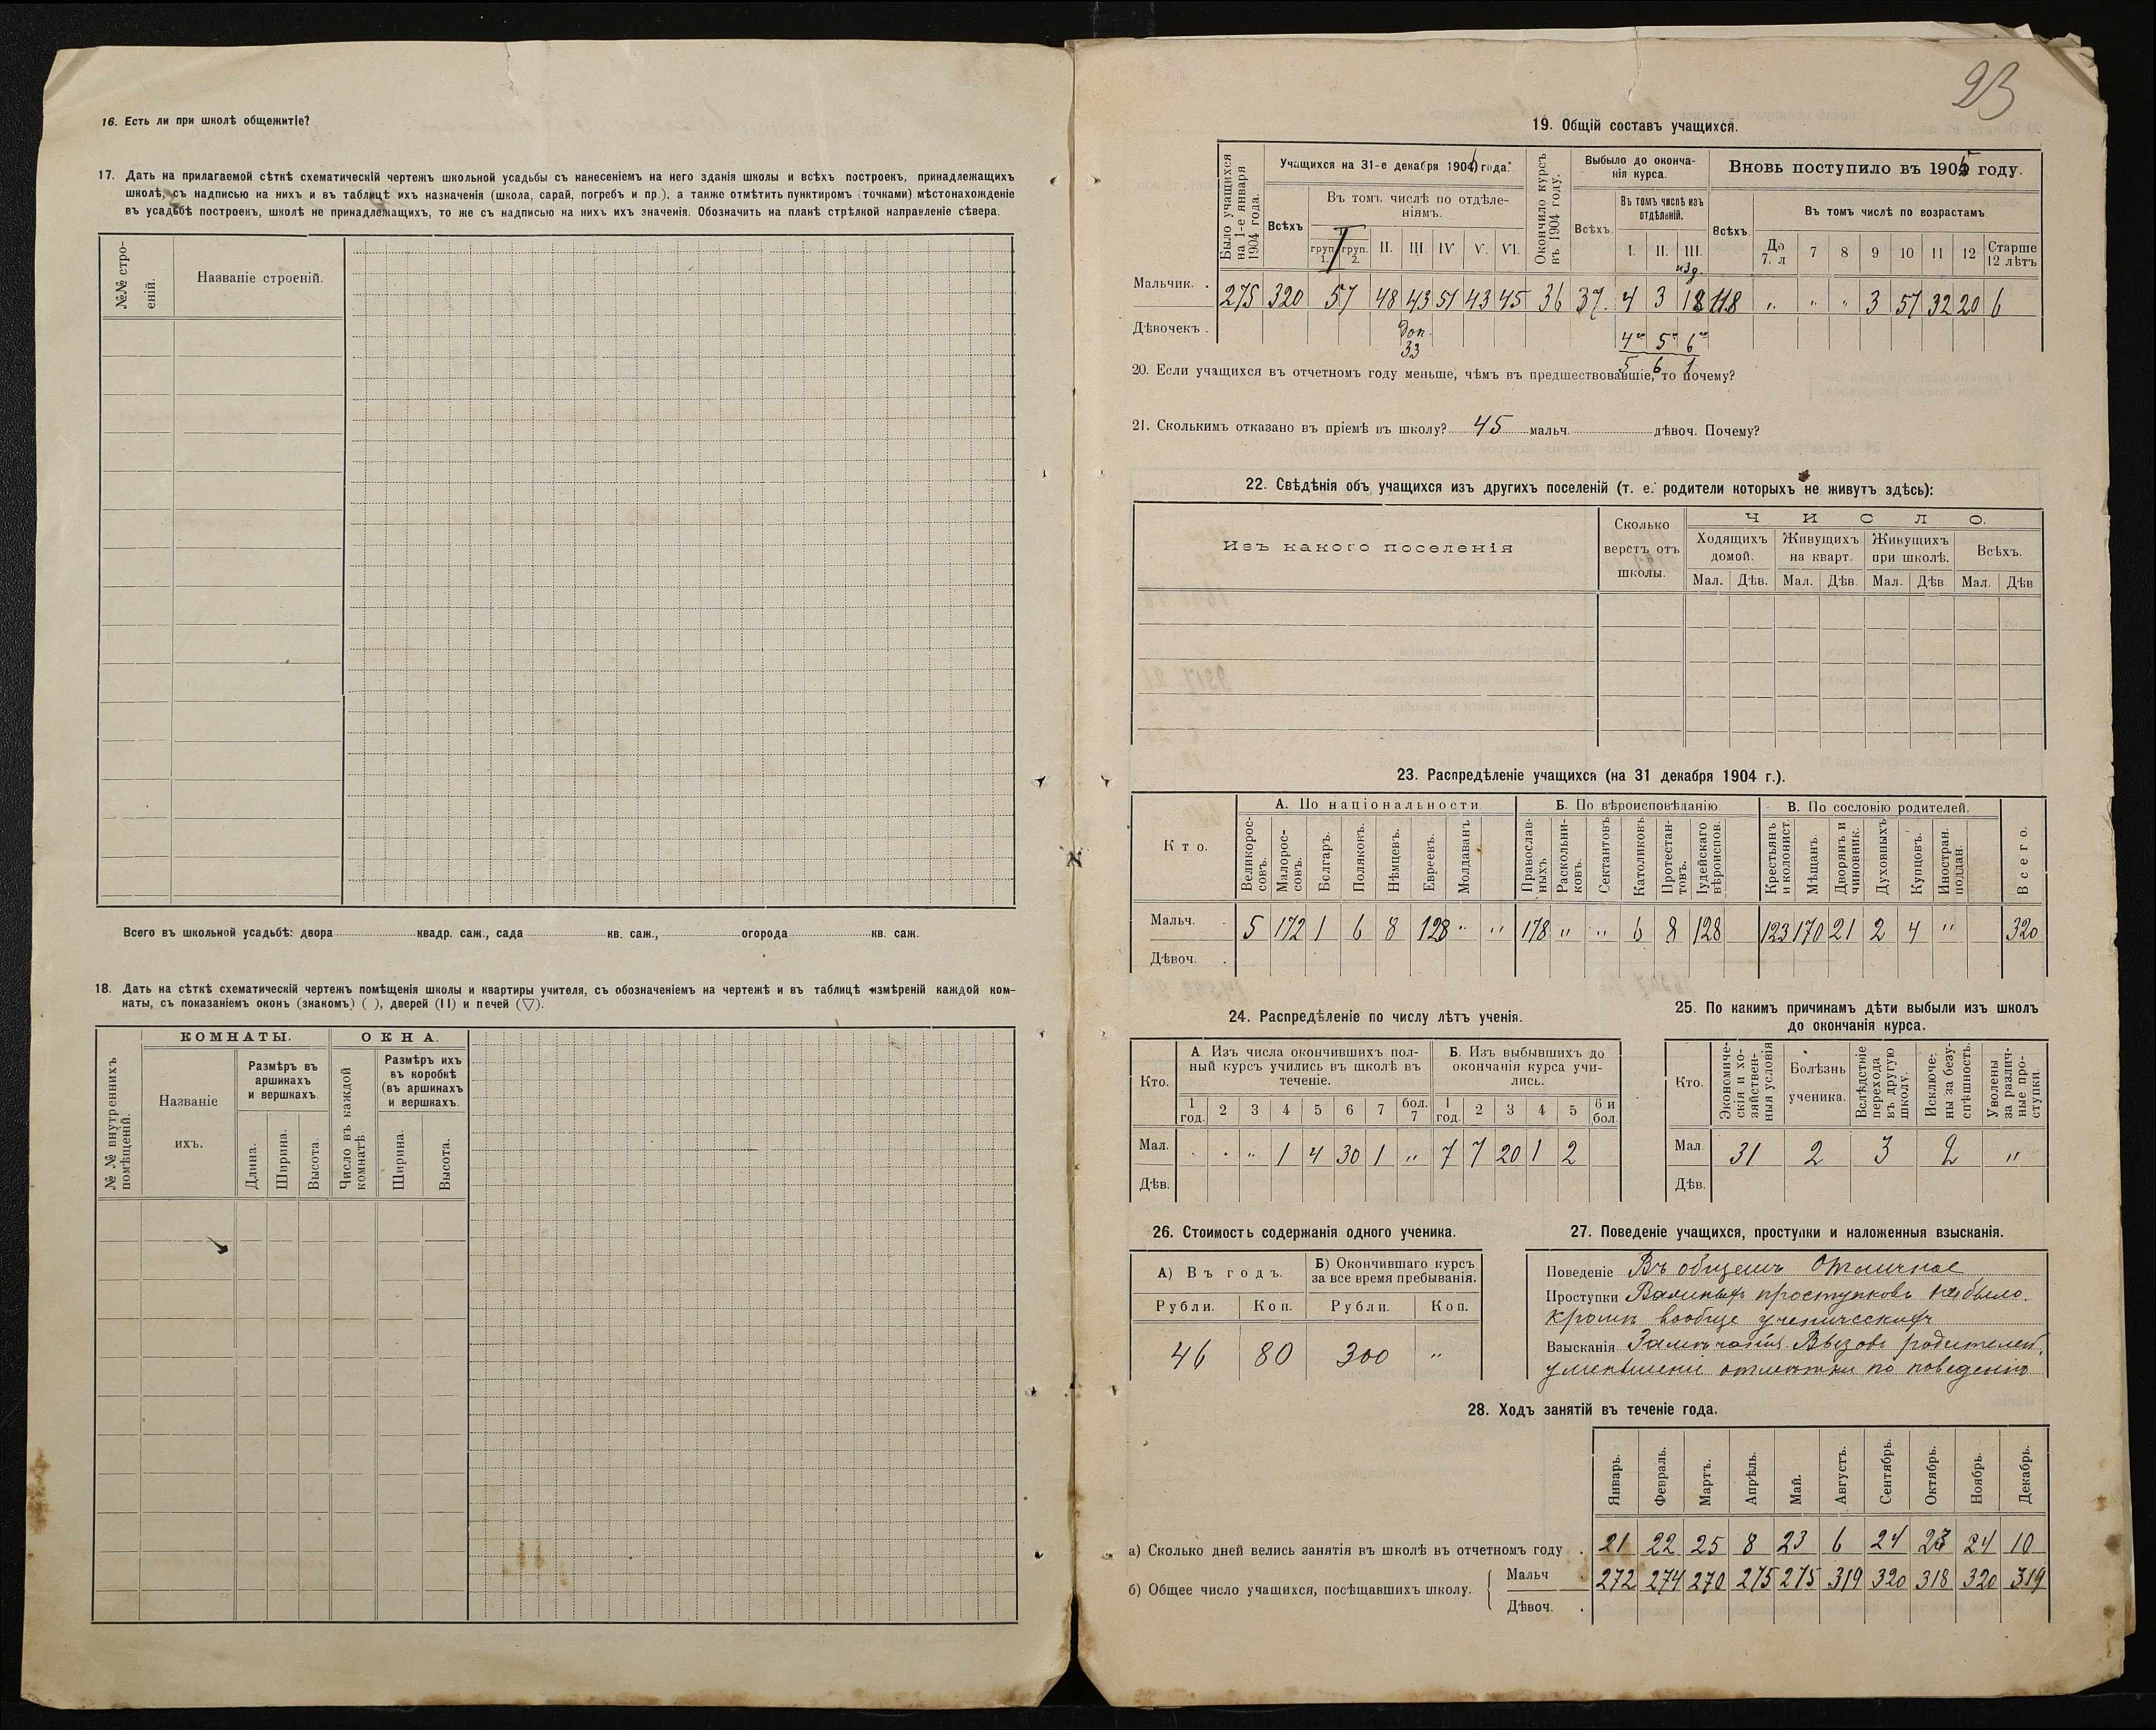 16. Есть ли при школѣ общежитіе?
17. Дать на прилагаемой сѣткѣ схематическій чертежъ школьной усадьбы съ нанесеніемъ на него зданія школы и всѣхъ построекъ, принадлежащихъ
школѣ, съ надписью на нихъ и въ таблицѣ ихъ назначенія (школа, сарай, погребъ и пр.), а также отмѣтить пунктиромъ (точками) мѣстонахожденіе
въ усадьбѣ построекъ, школѣ не принадлежащихъ, то же съ надписью на нихъ ихъ значенія. Обозначить на планѣ стрѣлкой направленіе сѣвера.
№№ стро-
еній.
Названіе строеній.
Всего въ школьной усадьбѣ: двора квадр. саж., сада кв. саж., огорода кв. саж.
18. Дать на сѣткѣ схематическій чертежъ помѣщенія школы и квартиры учителя, съ обозначеніемъ на чертежѣ и въ таблицѣ измѣреній каждой ком-
наты, съ показаніемъ оконъ (знакомъ) ( ), дверей (II) и печей (▽).
№ № внутреннихъ помѣщеній.
КОМНАТЫ.
ОКНА.
Названіе
ихъ.
Размѣръ въ
аршинахъ
и вершкахъ.
Длина.
Ширина.
Высота.
Число въ каждой комнатѣ
Размѣръ ихъ
въ коробкѣ
(въ аршинахъ
и вершкахъ.
Ширина.
Высота.
23
19. Общій составъ учащихся.
Было учащихся на 1-е января 1904 года.
Учащихся на 31-е декабря 1904 года.
Всѣхъ
Въ томъ числѣ по отдѣле-
ніямъ.
I
груп. 1.
груп. 2.
II. III. IV. V. VI.
Окончило курсъ въ 1904 году.
Выбыло до оконча-
нія курса.
Всѣхъ.
Въ томъ числѣ изъ
отдѣленій.
I. II. III.
Вновь поступило въ 1905 году.
Всѣхъ.
Въ томъ числѣ по возрастамъ
До 7. л 7 8 9 10 11 12 Старше 12 лѣтъ
Мальчик. 275 320 57 48 43 51 43 45 36 37. 4 3 18 118 " " " 3 57 32 20 6
Дѣвочекъ
Доп.
33
4 5 6
5 6 1
20. Если учащихся въ отчетномъ году меньше, чѣмъ въ предшествовавшіе, то почему?
21. Сколькимъ отказано въ пріемѣ въ школу? 45 мальч. дѣвоч. Почему?
22. Свѣдѣнія объ учащихся изъ другихъ поселеній (т. е. родители которыхъ не живутъ здѣсь):
Изъ какого поселенія
Сколько
верстъ отъ
школы.
ЧИСЛО.
Ходящихъ
домой.
Живущихъ
на кварт.
Живущихъ
при школѣ.
Всѣхъ.
Мал. Дѣв. Мал. Дѣв. Мал. Дѣв. Мал. Дѣв
23. Распредѣленіе учащихся (на 31 декабря 1904 г.).
Кто.
А. По національности
Великорос-
совъ.
Малорос-
совъ.
Болгаръ.
Поляковъ.
Нѣмцевъ.
Евреевъ.
Молдаванъ
Б. По вѣроисповѣданію
Православ-
ныхъ.
Раскольни-
ковъ.
Сектантовъ
Католиковъ
Протестан-
товъ.
Іудейскаго
вѣроиспов.
В. По сословію родителей.
Крестьянъ
и колонист.
Мѣщанъ.
Дворянъ и
чиновник.
Духовныхъ
Купцовъ.
Иностран.
поддан.
Всего.
Мальч. 5 172 1 6 8 128 " " 178 " " 6 8 128 123 170 21 2 4 " 320
Дѣвоч.
24. Распредѣленіе по числу лѣтъ ученія.
Кто.
А. Изъ числа окончившихъ пол-
ный курсъ учились въ школѣ въ
теченіе.
1 год. 2 3 4 5 6 7 бол. 7
Б. Изъ выбывшихъ до
окончанія курса учи-
лись.
1 год. 2 3 4 5 6 и бол.
Мал. " " " 1 4 30 1 " 7 7 20 1 2
Дѣв.
25. По какимъ причинамъ дѣти выбыли изъ школъ
до окончанія курса.
Кто.
Экономиче-
скія и хо-
зяйствен-
ныя условія
Болѣзнь
ученика.
Вслѣдствіе
перехода
въ другую
школу.
Исключе-
ны за безу-
спѣшность.
Уволены
за различ-
ные про-
ступки.
Мал 31 2 3 2 "
Дѣв.
26. Стоимость содержанія одного ученика.
А) Въ годъ.
Б) Окончившаго курсъ
за все время пребыванія.
Рубли. Коп. Рубли. Коп.
46 80 300 "
27. Поведеніе учащихся, проступки и наложенныя взысканія.
Поведеніе Въ общемъ Отличное
Проступки Важныхъ проступковъ не было.
Кромѣ вообще ученическихъ
Взысканія Замѣчанія Вызовъ родителей,
уменьшеніе отмѣтки по поведенію
28. Ходъ занятій въ теченіе года.
Январь. Февраль. Мартъ. Апрѣль. Май. Августъ. Сентябрь. Октябрь. Ноябрь. Декабрь.
а) Сколько дней велись занятія въ школѣ въ отчетномъ году 21 22 25 8 23 6 24 23 24 10
б) Общее число учащихся, посѣщавшихъ школу. Мальч 272 274 270 275 275 319 320 318 320 319
Дѣвоч.